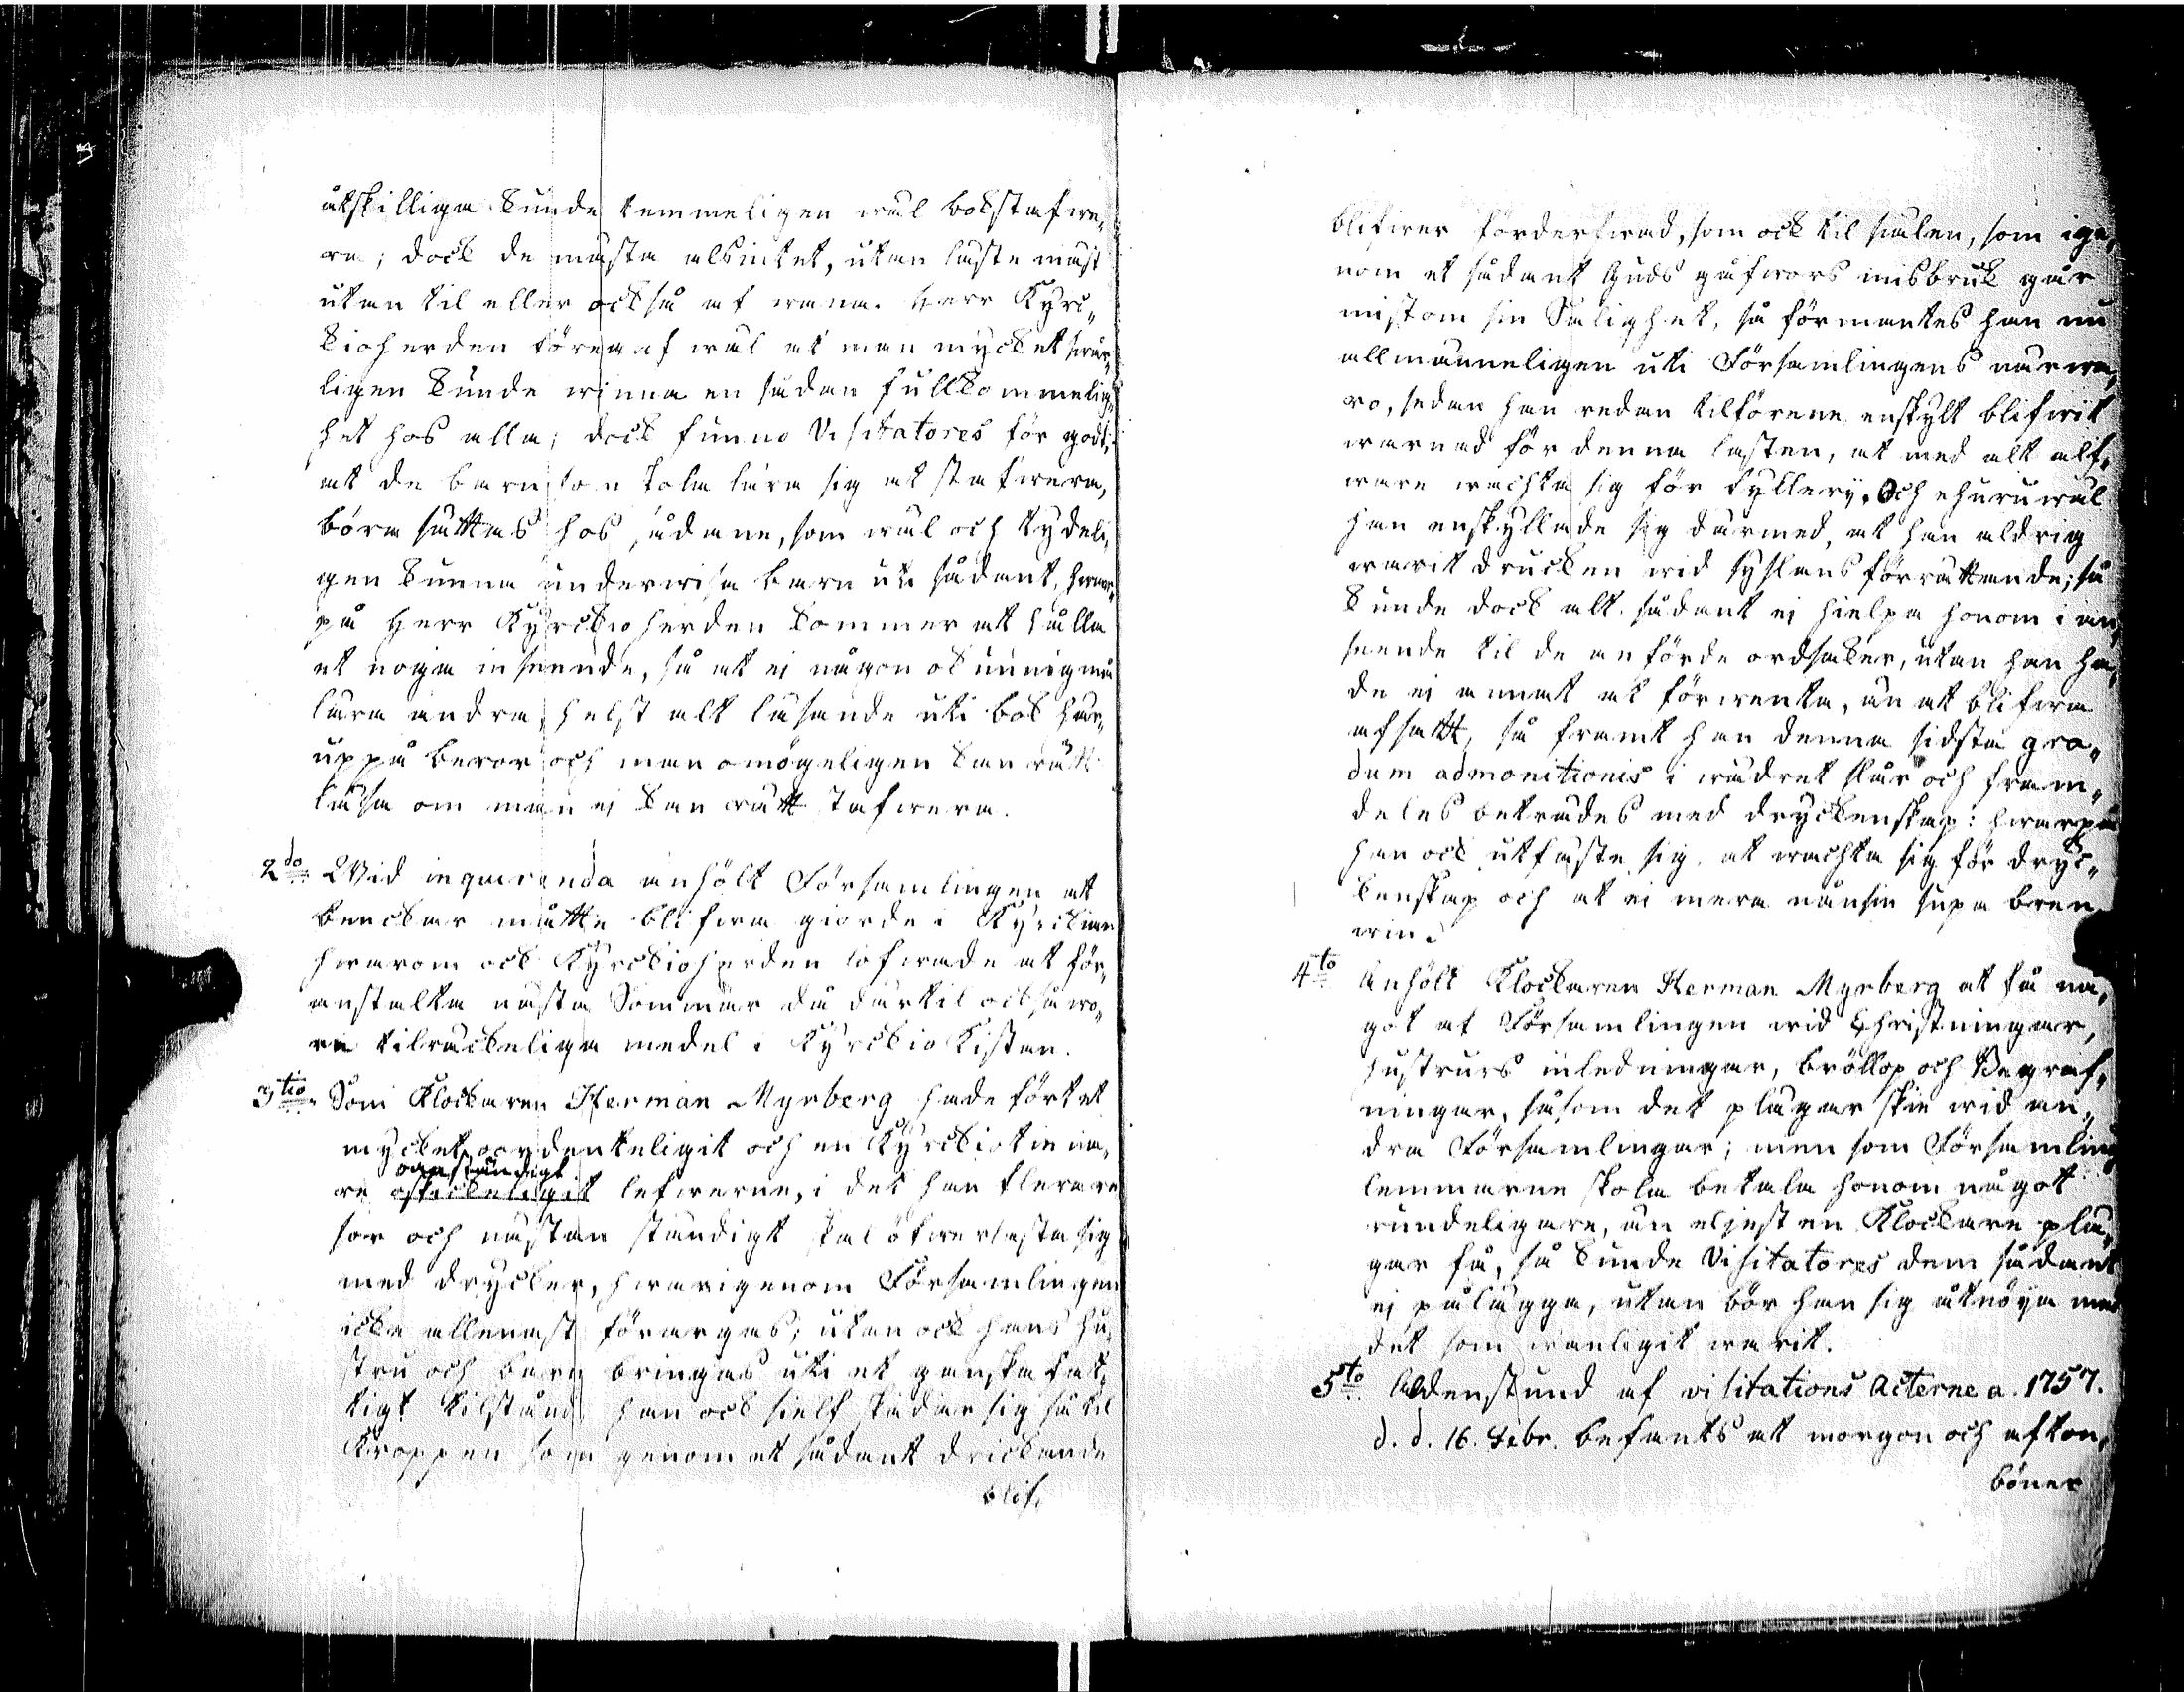 åtskilliga kunde temmeligen wäl bokstafwe„
ra; dock de mästa alsintet, utan läste mäst
utan til eller också af wana. Herr Kyrc„
kioherden föregaf wäl at man mycket swår„
ligen kunde winna en sådan fullkommelig„
het hos alla; dock funno Visitatores för godt,
at de barn som skola lära sig at stafwera,
böra sättas hos sådane, som wäl och tydeli„
gen kunna underwisa barn uti sådant, hwar„
på Herr Kyrckioherden kommer at hålla
et noga inseende, så at ej någon okunnig må
lära andra, helst alt läsande uti bok här„
uppå beror och man omögeligen kan rätt
läsa om man ej kan rätt stafwera.
2do Wid inquirenda anhölt Församlingen at
benckar måtte blifwa giorde i Kyrckian
hwarom ock Kyrckioherden lofwade at för„
anstalta nästa Sommar då därtil också wo„
ro tilräckeliga medel i Kyrckio Kistan.
3tio. Som Klockaren Herman Myrberg hade fört et
mycket oordenteligit och en Kyrckiotiena„
re oanständigt
oskickeligit lefwerne, i det han flera re„
sor och nästan ständigt skal öfwerlasta sig
med drycker, hwarigenom Församlingen
icke allenast förargas; utan ock hans hu„
stru och barn bringas uti et ganska fat„
tigt tilstånd, han ock sielf skadar sig så til
Kroppen som genom et sådant drickande
blif„
blifwer förderfwad, som ock til siälen, som ige„
nom et sådant Guds gåfwors misbruk går
mistom sin Salighet, så förmantes han nu
allmänneligen uti Församlingens närwa„
ro, sedan han redan tilförene enskylt blifwit
warnad för denna lasten, at med alt alf„
ware wachta sig för fyllery. Och ehuruwäl
han enskyllade sig därmed, at han aldrig
warit drucken wid syslans förrättande; så
kunde dock alt sådant ej hielpa honom i an„
seende til de anförde ordsaker, utan han ha„
de ej annat at förwenta, än at blifwa
afsatt, så framt han denna sidsta gra„
dum admonitionis i wädret slår och fram„
deles beträdes med dryckenskap: hwarpå
han ock utfäste sig at wachta sig för dryc„
kenskap och at ej mera nånsin supa bren
win.
4to Anhölt Klockaren Herman Myrberg at få nå„
got af Församlingen wid Christningar,
hustrurs inledningar, bröllop och Begraf„
ningar, såsom det plägar skie wid an„
dra Församlingar; men som Församlings
lemmarne skola betala honom något
rundeligare, än eljest en Klockare plä„
gar få, så kunde Visitatores dem sådant
ej pålägga, utan bör han sig åtnöya med
det som wanligit warit.
5to Aldenstund af visitations Acterne a. 1757.
d. d. 16. Febr. befants at morgon och afton„
böner